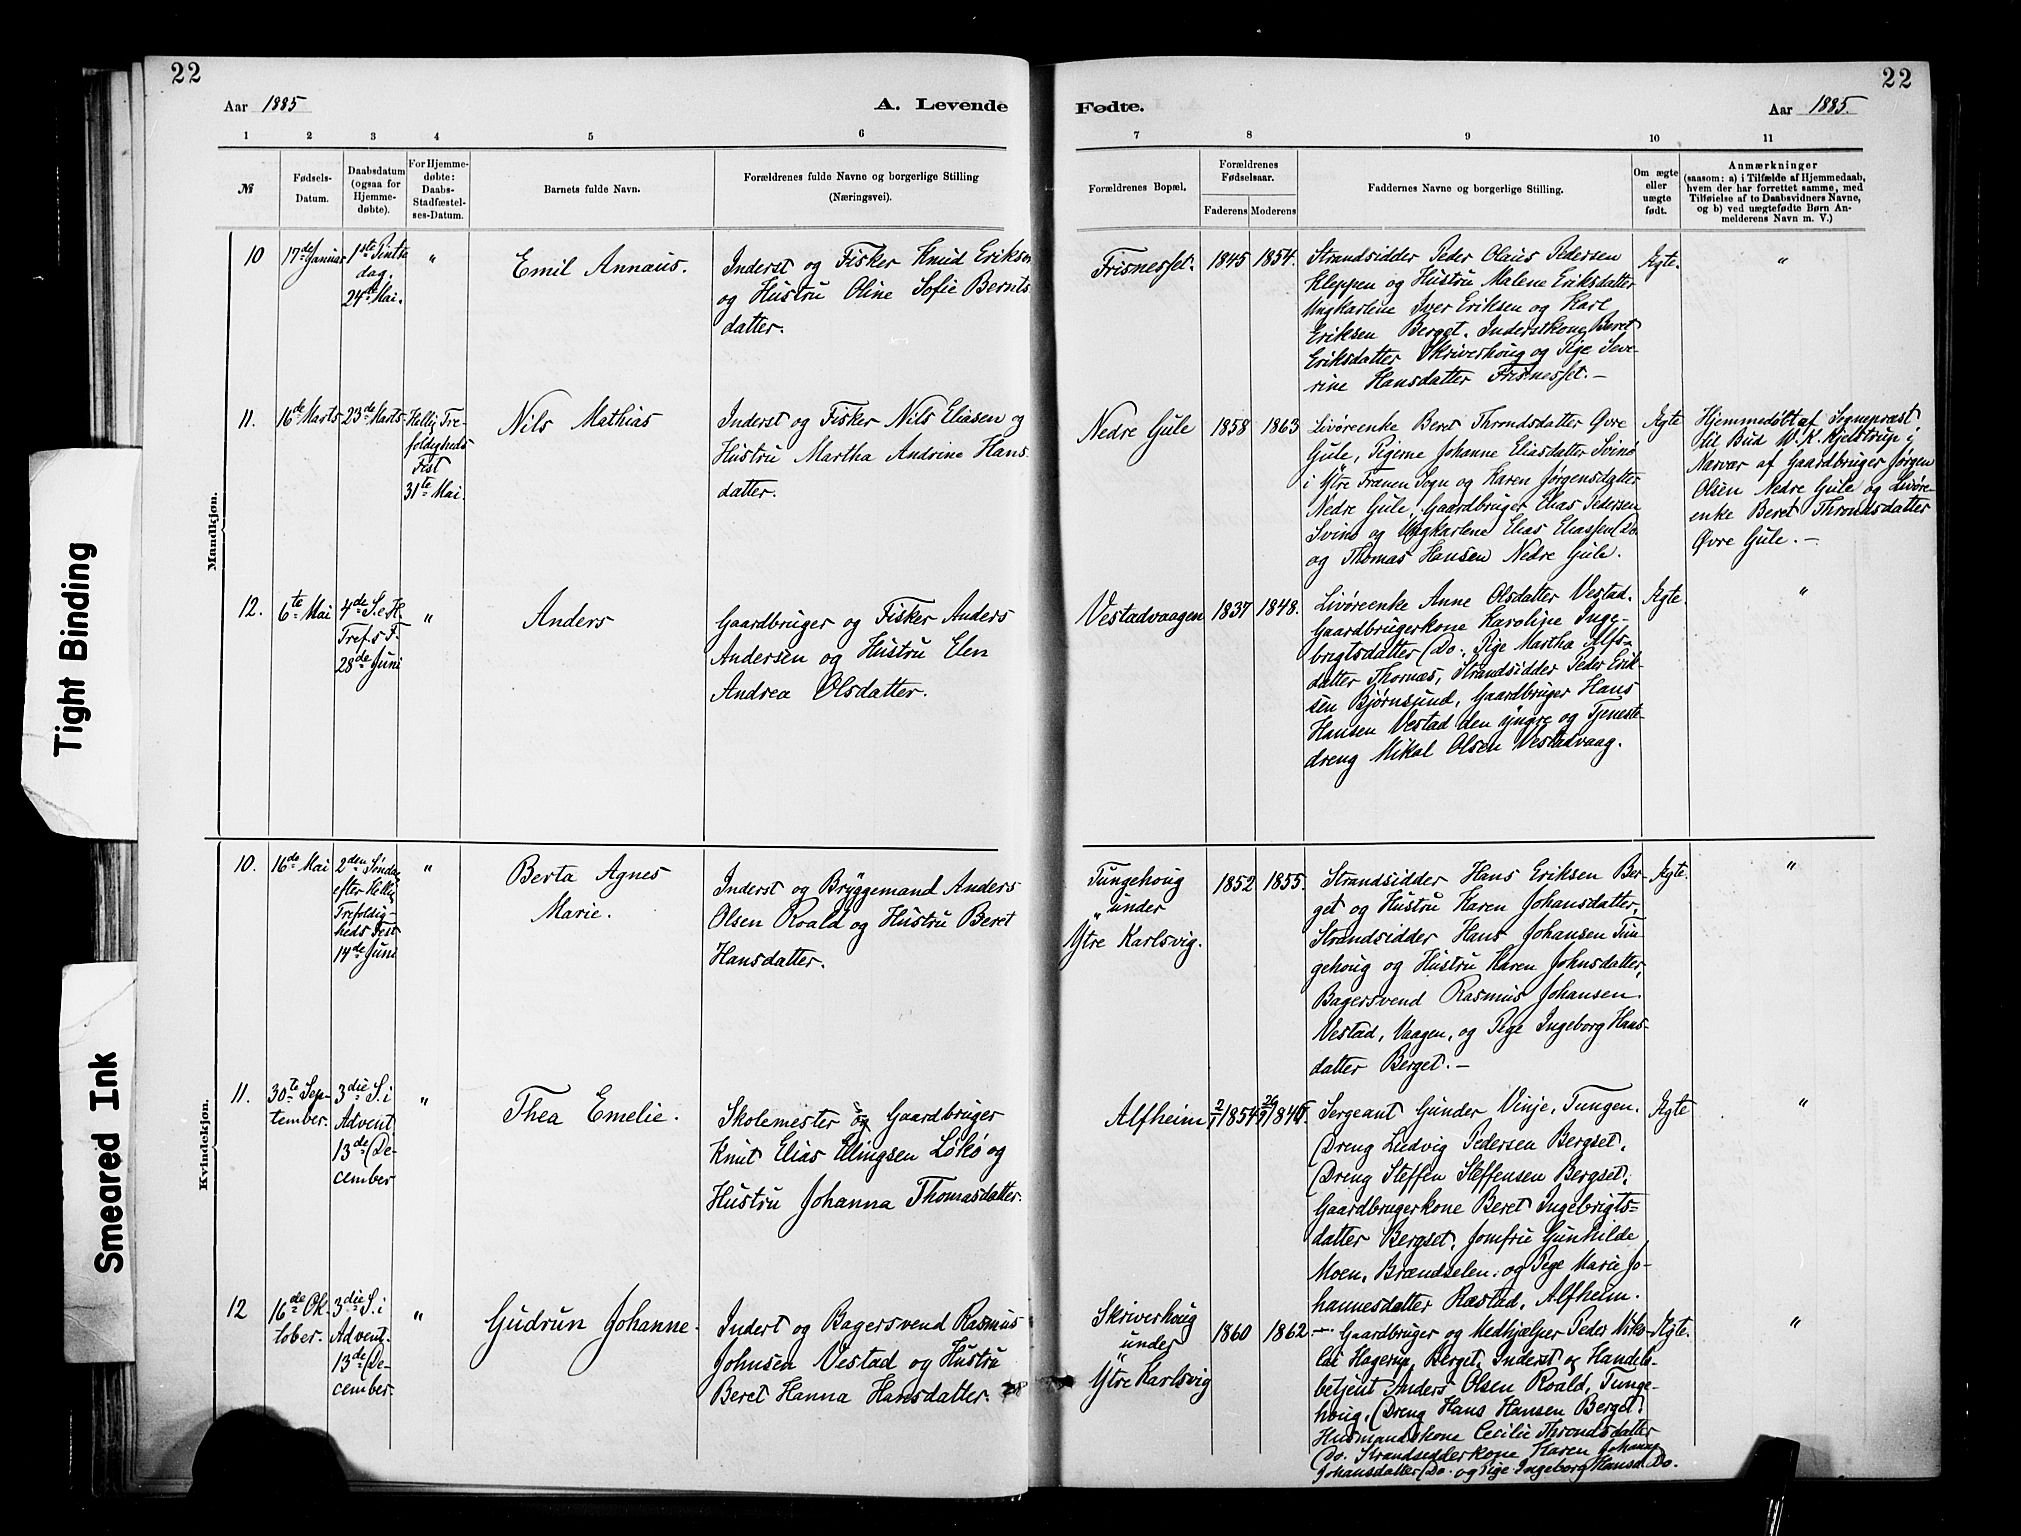 22
Aar 1885
A. Levende
1 2 3 4 5 6
№
Fødsels-
Datum.
Daabsdatum
(ogsaa for
Hjemme-
døbte).
For Hjemme-
døbte:
Daabs-
Stadfæstel-
ses-Datum.
Barnets fulde Navn.
Forældrenes fulde Navne og borgerlige Stilling
(Næringsvei).
Mandkjøn.
10
17de Januar
1ste Pintse
dag.
24de Mai.
"
Emil Annæus.
Inderst og Fisker Knud Eriksen
og Hustru Oline Sofie Bernts
datter.
11.
16de Marts
23de Marts
Hellig Tre-
foldigheds
Fest
31te Mai.
Nils Mathias
Inderst og Fisker Nils Eliasen og
Hustru Martha Andrine Hans
datter.
12.
6te Mai
4de S. e H.
Tref.s F.
28de Juni
"
Anders
Gaardbruger og Fisker Anders
Andersen og Hustru Elen
Andrea Olsdatter.
Kvindekjøn.
10.
16de Mai
2den Søndag
efter Hellig
Trefoldig-
heds Fest
14de Juni
"
Berta Agnes
Marie.
Inderst og Bryggemand Anders
Olsen Roald og Hustru Beret
Hansdatter.
11.
30te Sep-
tember.
3die S. i
Advent
13de De-
cember
"
Thea Emelie.
Skolemester og Gaardbruger
Knut Elias Ellingsen Løkø og
Hustru Johanna Thomasdatter.
12
16de Ok-
tober.
3die S. i
Advent.
13de De-
cember.
"
Gudrun Johanne.
Indert og Bagersvend Rasmus
Johnsen Vestad og Hustru
Beret Hanna Hansdatter.
22
Fødte.
Aar 1885.
7 8 9 10 11
Forældrenes Bopæl.
Forældrenes
Fødselsaar.
Faderens Moderens
Faddernes Navne og borgerlige Stilling.
Om ægte
eller
uægte
født.
Anmærkninger
(saasom: a) i Tilfælde af Hjemmedaab,
hvem der har forrettet samme, med
Tilføielse af to Daabsvidners Navne,
og b) ved uægtefødte Børn An-
melderens Navn m. V.)
Frisnesset.
1845
1854.
Strandsidder Peder Olaus Pedersen
Kleppen og Hustru Malene Eriksdatter
Ungkarlene Iver Eriksen og Karl
Eriksen Berget. Inderstkone Beret
Eriksdatter Skriverhoug og Pige Seve-
rine Hansdatter Frisnesset. —
Ægte.
"
Nedre Gule
1858
1863
Livøreenke Beret Throndsdatter Øvre
Gule, Pigerne Johanne Eliasdatter Svinø
i Ytre Frænen Sogn og Karen Jørgensdatter
Nedre Gule, Gaardbruger Elias Pedersen
Svinø og Ungkarlene Elias Eliassen Do.
og Thomas Hansen Nedre Gule.
Ægte
Hjemmedøbt af Sognepræst
til Bud W. K. Hjelstrup i
Nærvær af Gaardbruger Jørgen
Olsen Nedre Gule og Livøre-
enke Beret Throndsdatter
Øvre Gule. —
Vestadvaagen
1837
1848.
Livøreenke Anne Olsdatter Vestad.
Gaardbrugerkone Karoline Inge-
brigtsdatter Do. Pige Martha Alfs-
datter Thornæs, Strandsidder Peder Erik-
sen Bjørnsund, Gaardbruger Hans
Hansen Vestad den yngre og Tjeneste-
dreng Mikal Olsen Vestadvaag.
Ægte.
"
Tungehoug
under
Ytre Karlsvig.
1852
1855.
Strandsidder Hans Eriksen Ber-
get og Hustru Karen Johansdatter,
Strandsidder Hans Johansen Tun-
gehoug og Hustru Karen Johnsdatter,
Bagersvend Rasmus Johansen
Vestad, Vaagen, og Pige Ingeborg Hans-
datter Berget. —
Ægte.
"
Alfheim
1854
Sergeant Gunder Vinje, Tungen.
Dreng Ludvig Pedersen Bergset.
Dreng Steffen Steffensen Bergset.
Gaardbrugerkone Beret Ingebrigts-
datter Bergset. Jomfru Gunhilde
Moen, Brændselen. og Pige Marie Jo-
hannesdatter Ræstad, Alfheim.
Ægte
"
Skriverhoug
under
Ytre Karlsvig
1860
1862
— Gaardbruger og Medhjælper Peder Niko-
lai Hagerup, Berget. Inderst og Handels-
betjent Anders Olsen Roald, Tunge-
houg, Dreng Hans Hansen Berget.
Husmandskone Cecilie Throndsdatter
Do. Strandsidderkone Karen Johans
Johansdatter Do. og Pige Ingeborg Hansd. Do.
Ægte.
"
Tight Binding
Smeared Ink